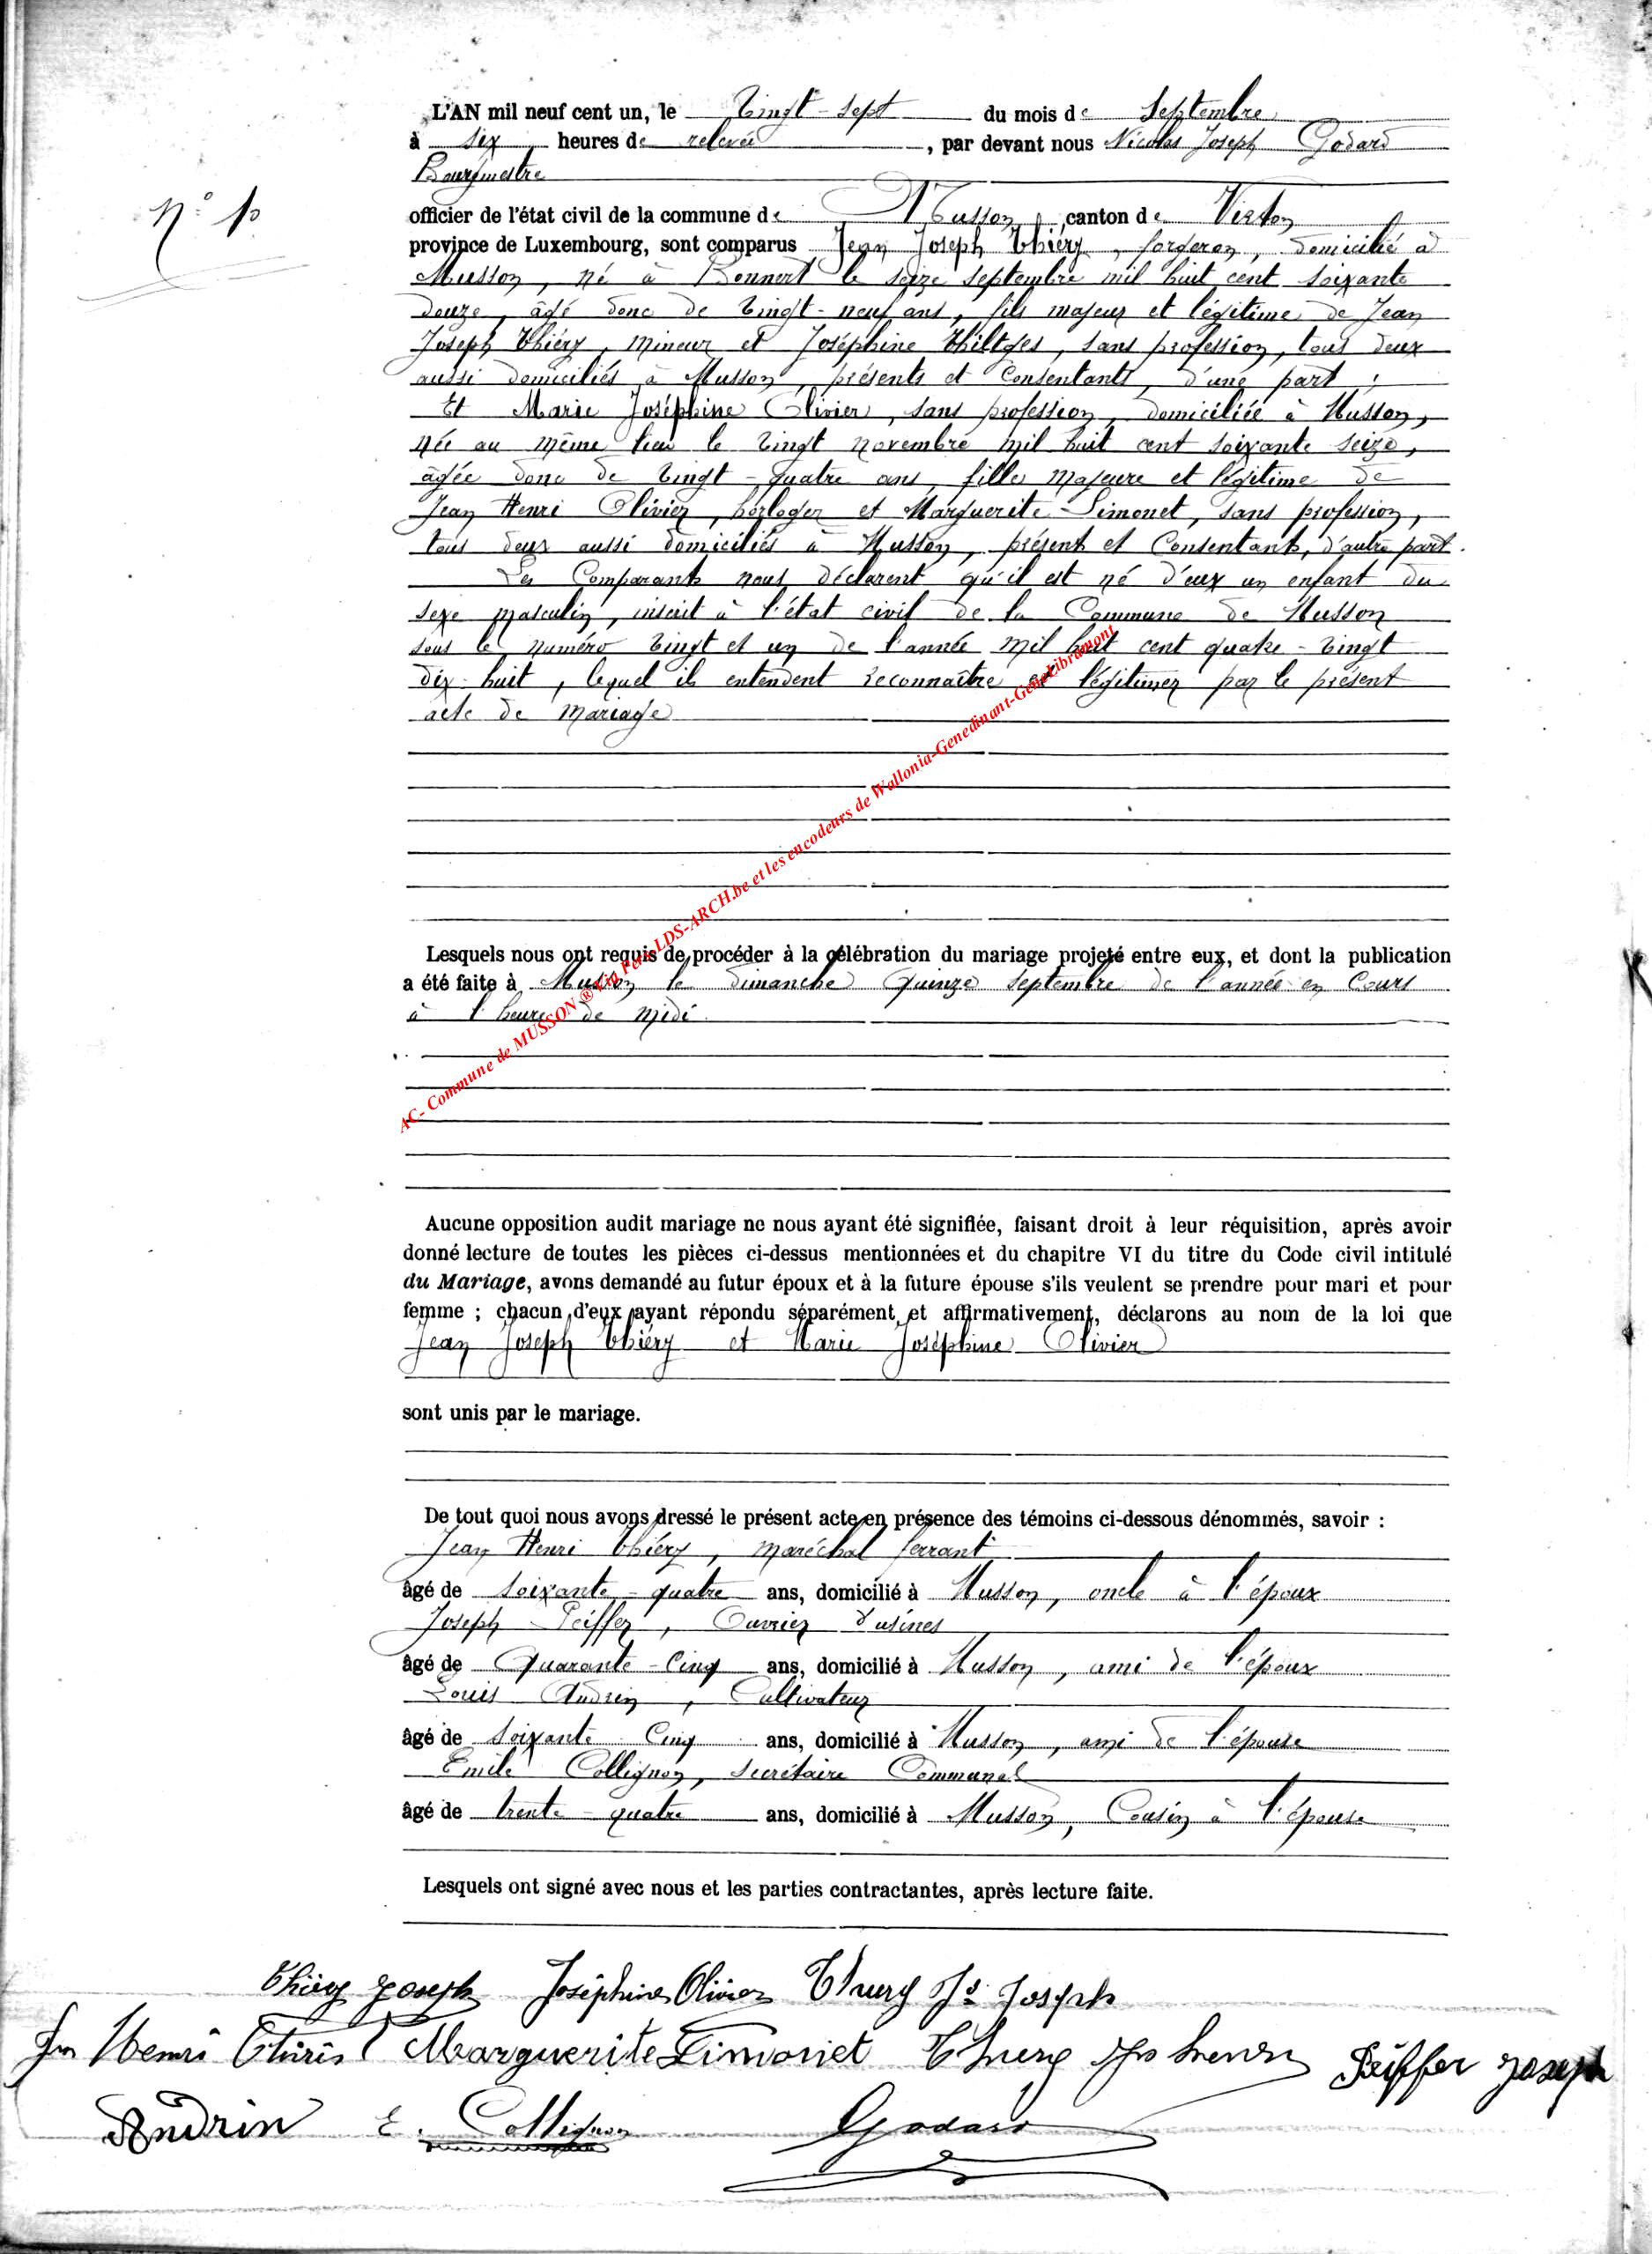 L'AN mil neuf cent un, le Vingt-sept du mois de Septembre
à six heures de relevée, par devant nous Nicolas Joseph Godard
Bourgmestre
N°
officier de l'état civil de la commune de Musson, canton de Virton
province de Luxembourg, sont comparus Jean Joseph Thiéry, forgeron, domicilié à
Musson, né à Bonnert le seize septembre mil huit cent soixante
douze, âgé donc de Vingt-neuf ans, fils majeur et légitime de Jean
Joseph Thiéry, mineur et Joséphine Thiltges, sans profession, tous deux
aussi domiciliés à Musson, présents et Consentants, d'une part;
Et Marie Joséphine Olivier, sans profession, domiciliée à Musson,
née au même lieu le Vingt novembre mil huit cent soixante seize,
âgée donc de Vingt-quatre ans, fille majeure et légitime de
Jean Henri Olivier, horloger et Marguerite Limonet, sans profession,
tous deux aussi domiciliés à Musson, présents et Consentants, d'autre part.
Les Comparants nous déclarent qu'il est né d'eux un enfant du
sexe masculin, inscrit à l'état civil de la Commune de Musson
sous le numéro Vingt et un de l'année mil huit cent quatre-Vingt
dix-huit, lequel ils entendent reconnaître et légitimer par le présent
acte de mariage
AC- Commune de MUSSON ® Via LDS-ARCH.be et les encodeurs de Wallonia-Genedinant-GeneLibramont
Lesquels nous ont requis de procéder à la célébration du mariage projeté entre eux, et dont la publication
a été faite à Musson le dimanche Quinze septembre de l'année en Cours
à l'heure de midi.
Aucune opposition audit mariage ne nous ayant été signifiée, faisant droit à leur réquisition, après avoir
donné lecture de toutes les pièces ci-dessus mentionnées et du chapitre VI du titre du Code civil intitulé
du Mariage, avons demandé au futur époux et à la future épouse s'ils veulent se prendre pour mari et pour
femme ; chacun d'eux ayant répondu séparément et affirmativement, déclarons au nom de la loi que
Jean Joseph Thiéry et Marie Joséphine Olivier
sont unis par le mariage.
De tout quoi nous avons dressé le présent acte en présence des témoins ci-dessous dénommés, savoir :
Jean Henri Thiéry, maréchal ferrant
âgé de soixante-quatre ans, domicilié à Musson, oncle à l'époux
Joseph Peiffer, Ouvrier d'usines
âgé de Quarante-Cinq ans, domicilié à Musson, ami de l'époux
Louis Andrin, Cultivateur
âgé de soixante Cinq ans, domicilié à Musson, ami de l'épouse
Emile Collignon, secrétaire Communal
âgé de trente-quatre ans, domicilié à Musson, Cousin à l'épouse
Lesquels ont signé avec nous et les parties contractantes, après lecture faite.
Thiéry Joseph Joséphine Olivier Thiery Jn Joseph
Jn Henri Marguerite Limonet Thiery Peiffer Joseph
Andrin E. Collignon Godard